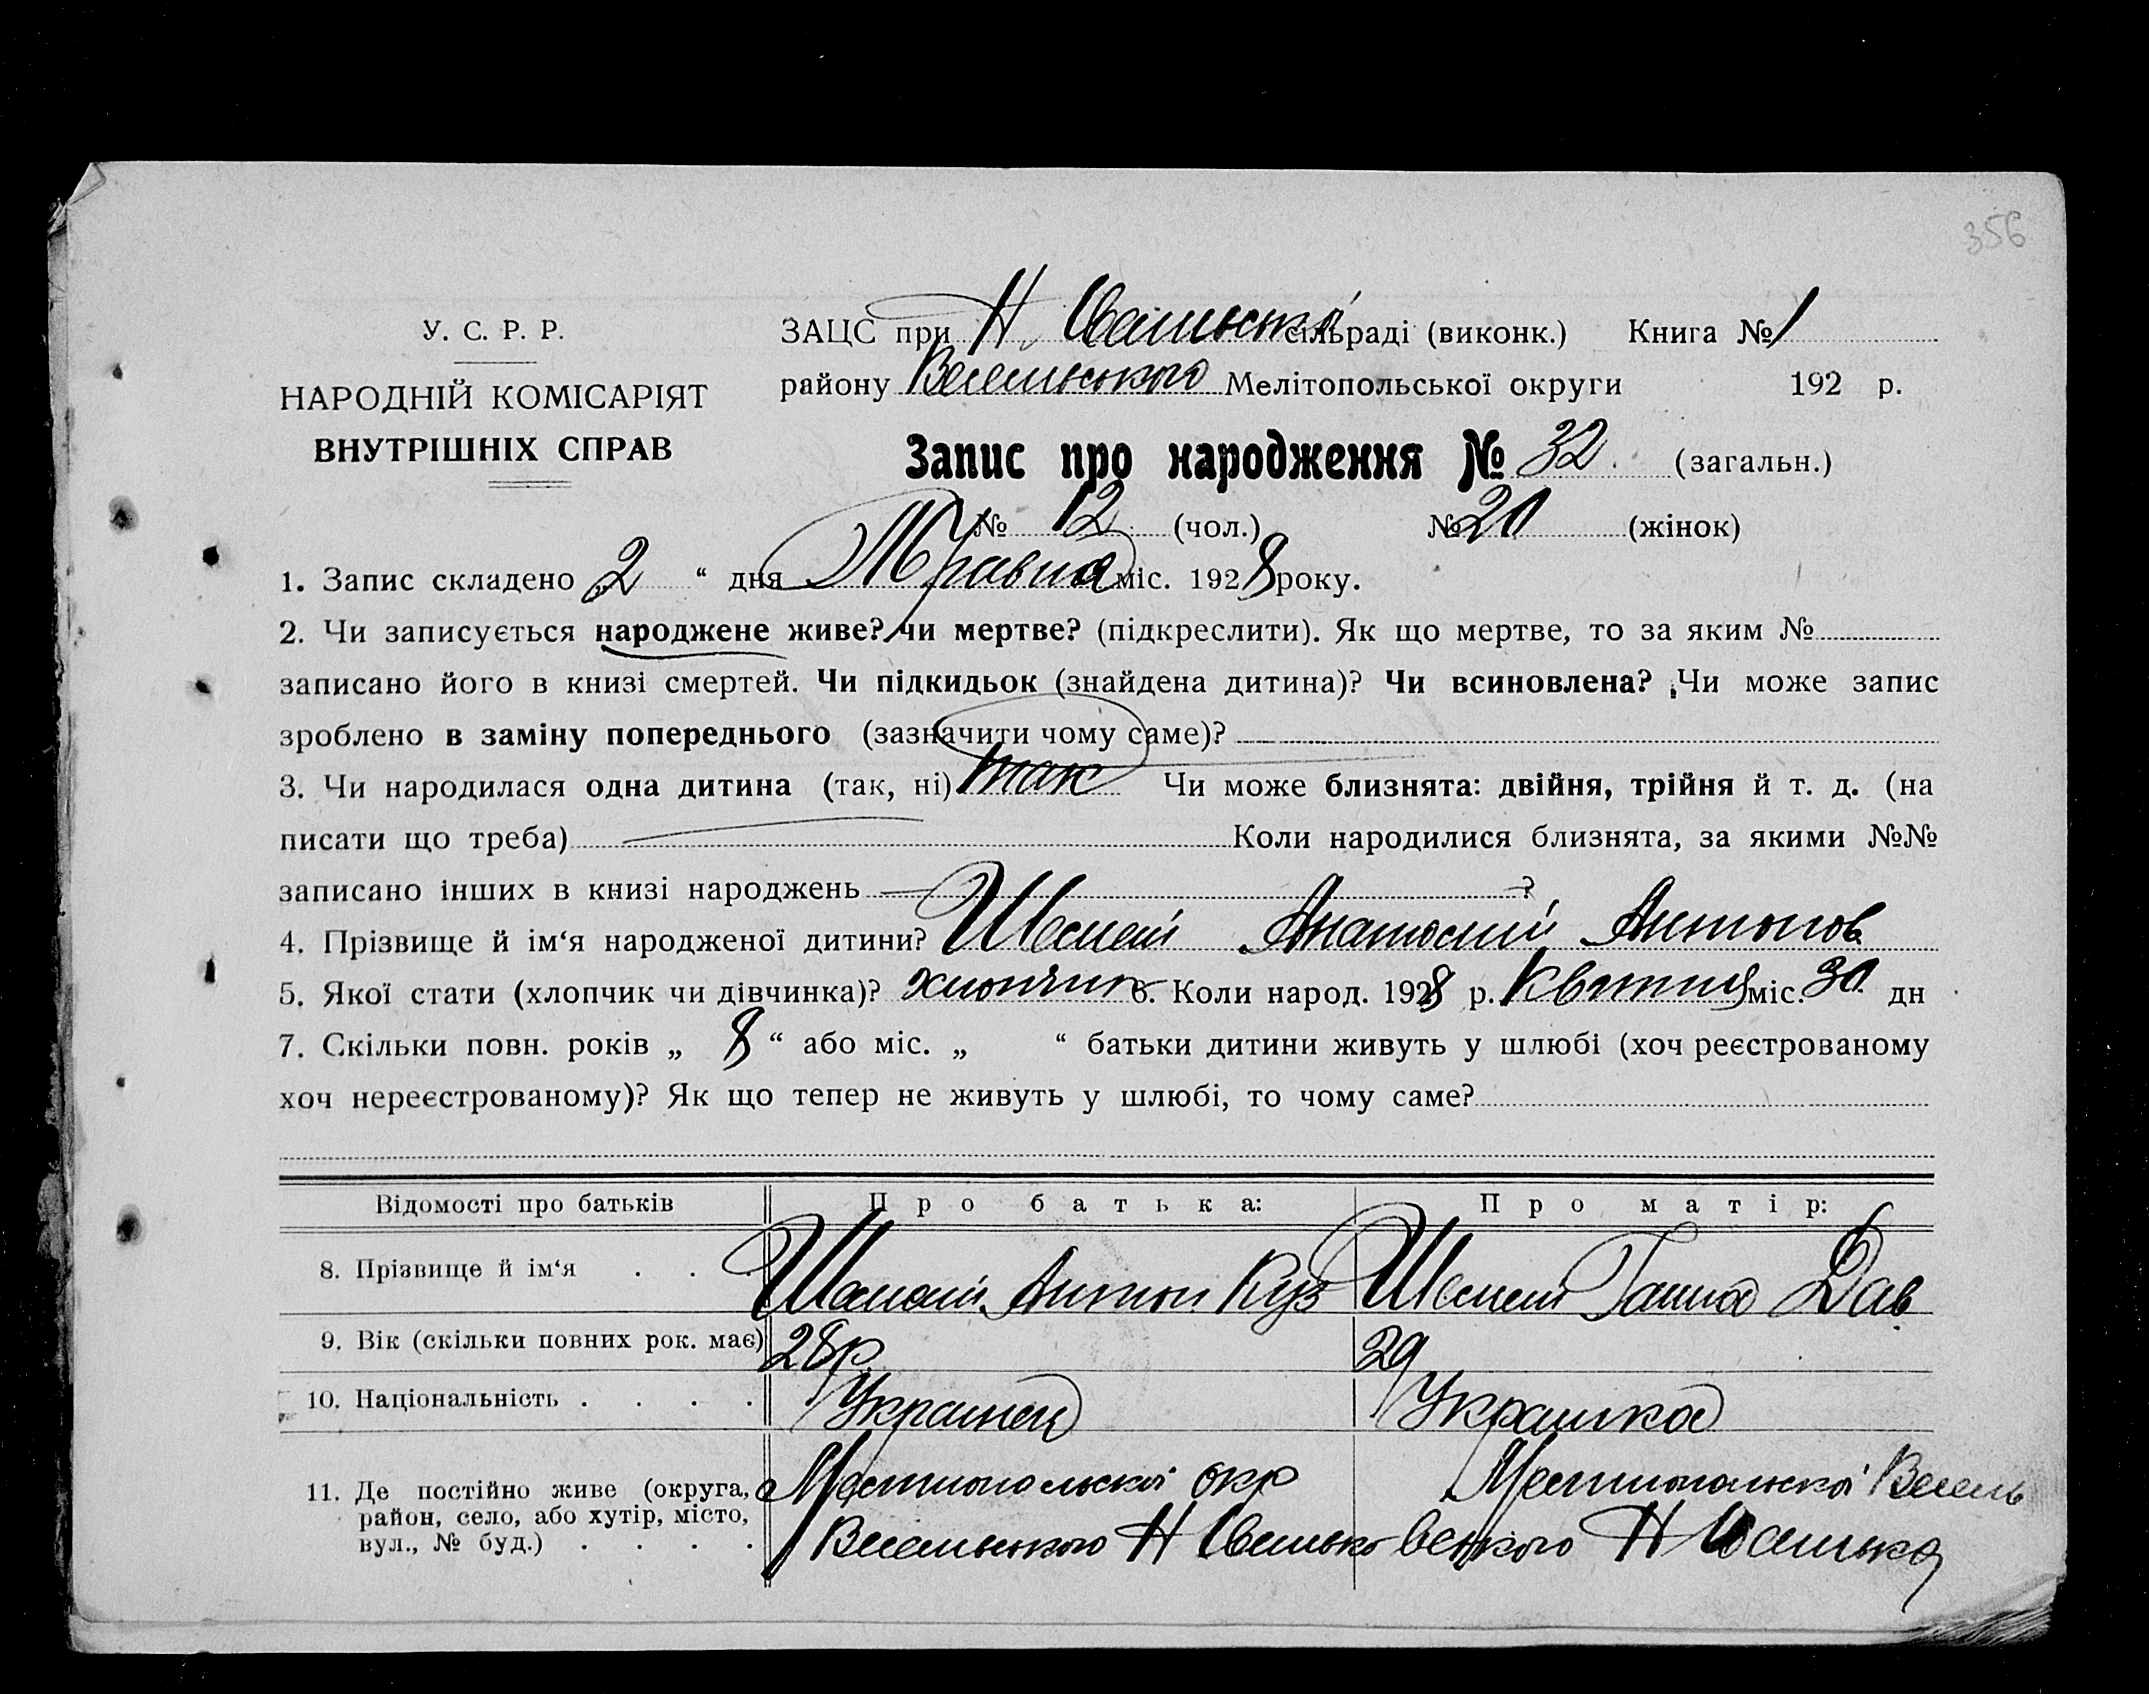 356
У. С. Р. Р.
НАРОДНІЙ КОМІСАРІЯТ
ВНУТРІШНІХ СПРАВ
ЗАЦС при Н. сільраді (виконк.) Книга № 1
району Весельського Мелітопольської округи 192 р.
Запис про народження № 32. (загальн.)
№ 12 (чол.) № 20 (жінок)
1. Запис складено „2 “ дня Травня міс. 1928 року.
2. Чи записується народжене живе? чи мертве? (підкреслити). Як що мертве, то за яким №
записано його в книзі смертей. Чи підкидьок (знайдена дитина)? Чи всиновлена? Чи може запис
зроблено в заміну попереднього (зазначити чому саме)?
3. Чи народилася одна дитина (так, ні) так Чи може близнята: двійня, трійня й т. д. (на
писати що треба) Коли народилися близнята, за якими №№
записано інших в книзі народжень — ?
4. Прізвище й ім‘я народженої дитини? Анатолій Антонов
5. Якої стати (хлопчик чи дівчинка)? хлопчик 6. Коли народ. 1928 р. Квітня міс. 30 дн
7. Скільки повн. років „ 8 “ або міс. „ “ батьки дитини живуть у шлюбі (хоч реєстрованому
хоч нереєстрованому)? Як що тепер не живуть у шлюбі, то чому саме?
Відомості про батьків Про батька: Про матір:
8. Прізвище й ім‘я . . . Антон Куз Ганна Дав
9. Вік (скільки повних рок. має) 28 р. 29
10. Національність . . . . Українец Украинка
11. Де постійно живе (округа, район, село, або хутір, місто, вул., № буд.) . . . .
Мелітопольскої окр
Весельського Н
Мелітопольскої Весель
Н